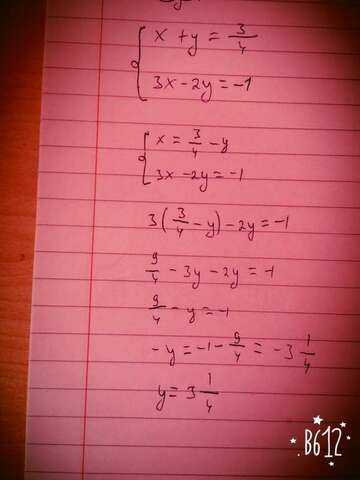 x + y = 3/4
3x - 2y = -1
x = 3/4 - y
3x - 2y = -1
3(3/4 - y) - 2y = -1
9/4 - 3y - 2y = -1
9/4 - y = -1
-y = -1 - 9/4 = -3 1/4
y = 3 1/4
.B612.